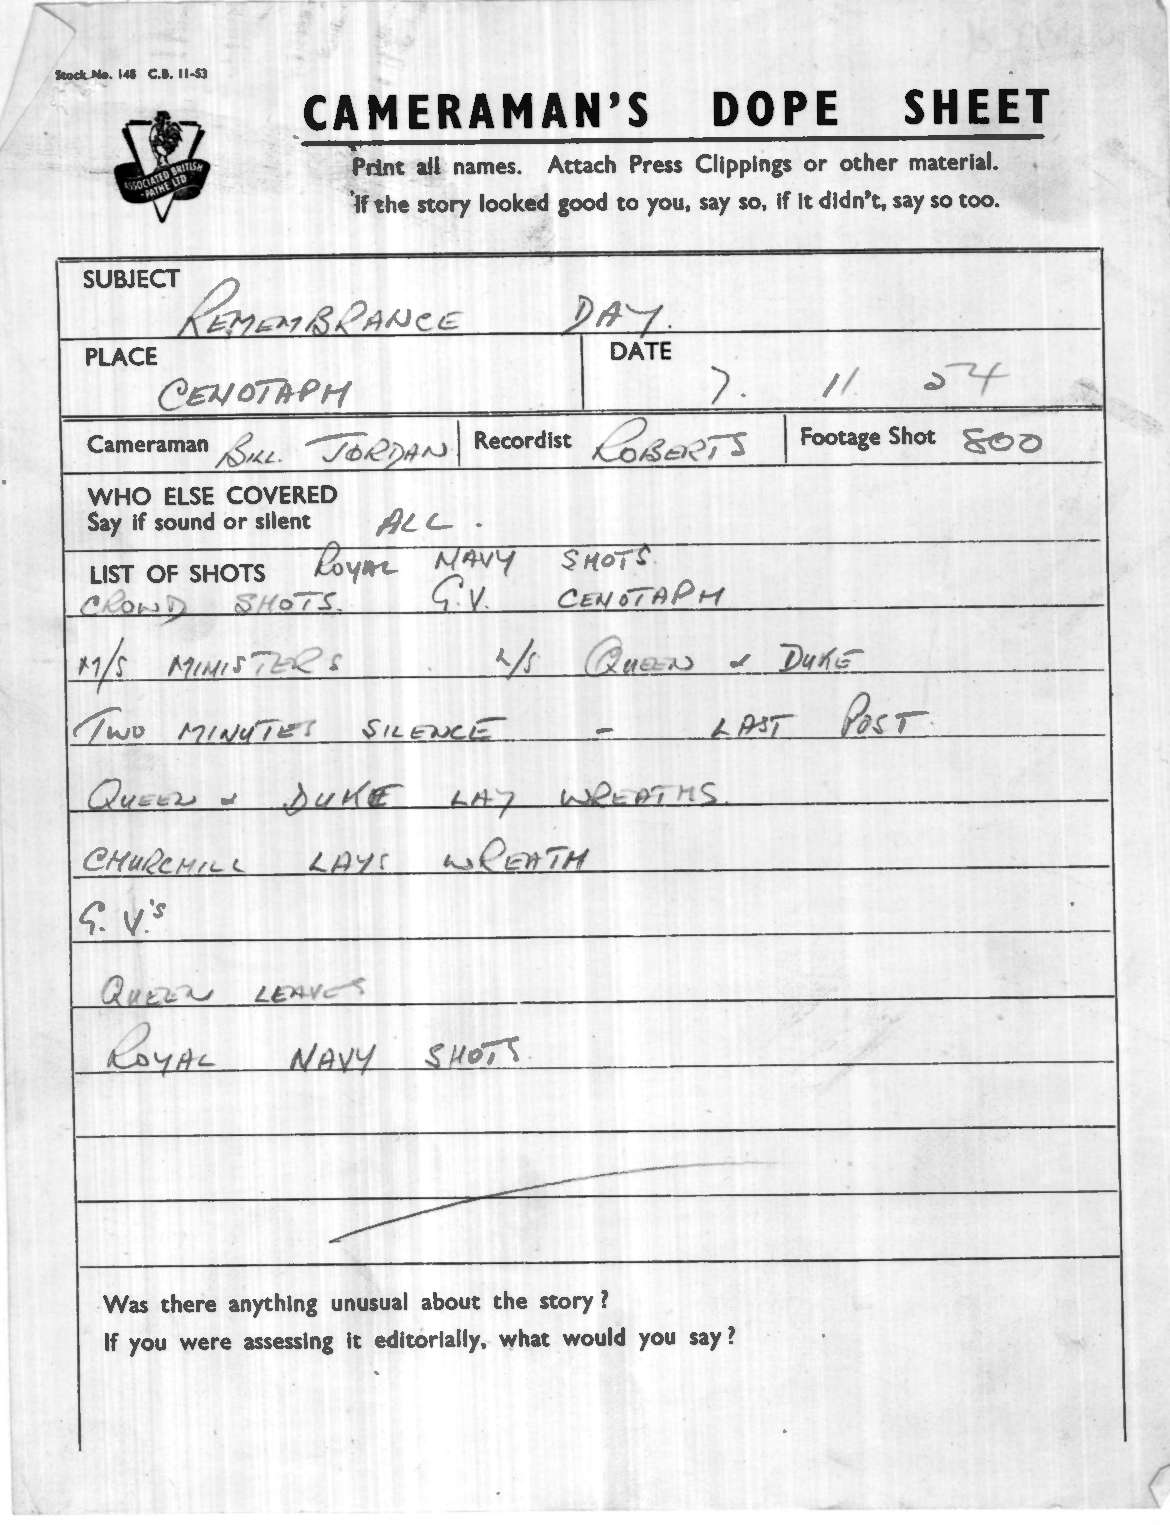 Stock No. 148 C.B. 11-53
CAMERAMAN'S DOPE SHEET
ASSOCIATED BRITISH
-PATHE LTD
Print all names. Attach Press Clippings or other material.
If the story looked good to you, say so, if it didn't, say so too.
SUBJECT
REMEMBRANCE DAY.
PLACE
CENOTAPH
DATE
7. 11 54
Cameraman BILL. JORDAN
Recordist ROBERTS
Footage Shot 800
WHO ELSE COVERED
Say if sound or silent ALL.
LIST OF SHOTS ROYAL NAVY SHOTS.
CROWD SHOTS. G.V. CENOTAPH
M/S MINISTERS . L/S QUEEN & DUKE
TWO MINUTES SILENCE - LAST POST.
QUEEN & DUKE LAY WREATHS.
CHURCHILL LAYS WREATH
G.V.'S
QUEEN LEAVES
ROYAL NAVY SHOTS.
Was there anything unusual about the story?
If you were assessing it editorially, what would you say?